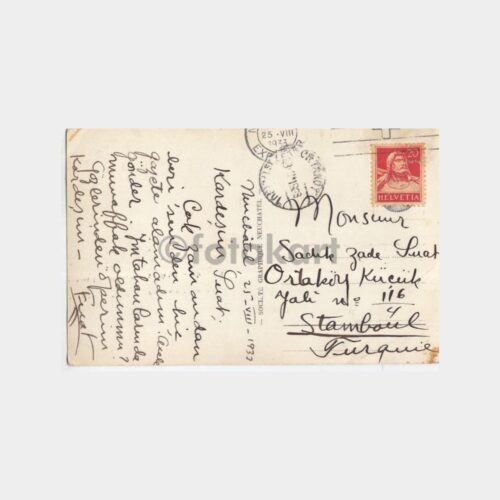 Neuchâtel 25-VIII-1933
Kardeşim Suat,
Çok zamandan
beri senden hiç
gazete alamadım. Acele
gönder. İmtahanlarında
muvaffak oldunmu?
Gözlerinden öperim
Kardeşim —
— SOCIÉTÉ GRAPHIQUE NEUCHATEL
25 -VIII
1933
20
HELVETIA
Monsieur
Sadık zade Suat
Ortaköy Küçük
Yalı no 116
Stamboul
Turquie
©fotokart